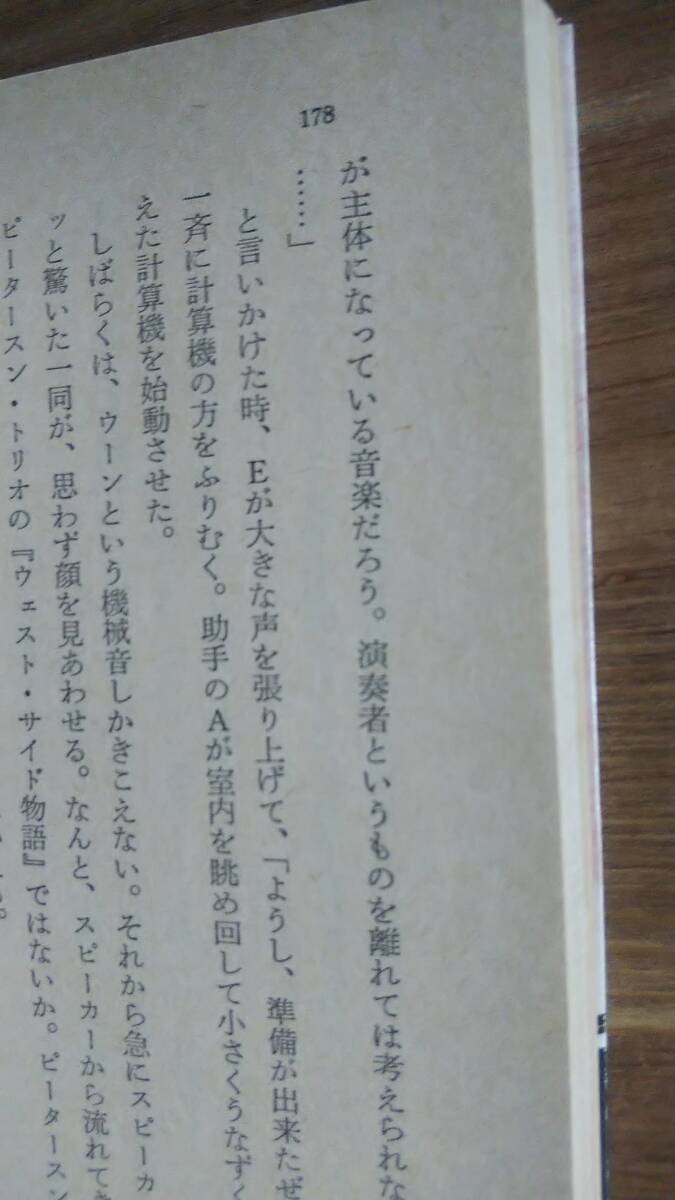 178
が主体になっている音楽だろう。演奏者というものを離れては考えられな
……」
と言いかけた時、Eが大きな声を張り上げて、「ようし、準備が出来たぜ
一斉に計算機の方をふりむく。助手のAが室内を眺め回して小さくうなずく
えた計算機を始動させた。
しばらくは、ウーンという機械音しかきこえない。それから急にスピーカ
ッと驚いた一同が、思わず顔を見あわせる。なんと、スピーカーから流れてき
ピータースン・トリオの『ウェスト・サイド物語』ではないか。ピータースン